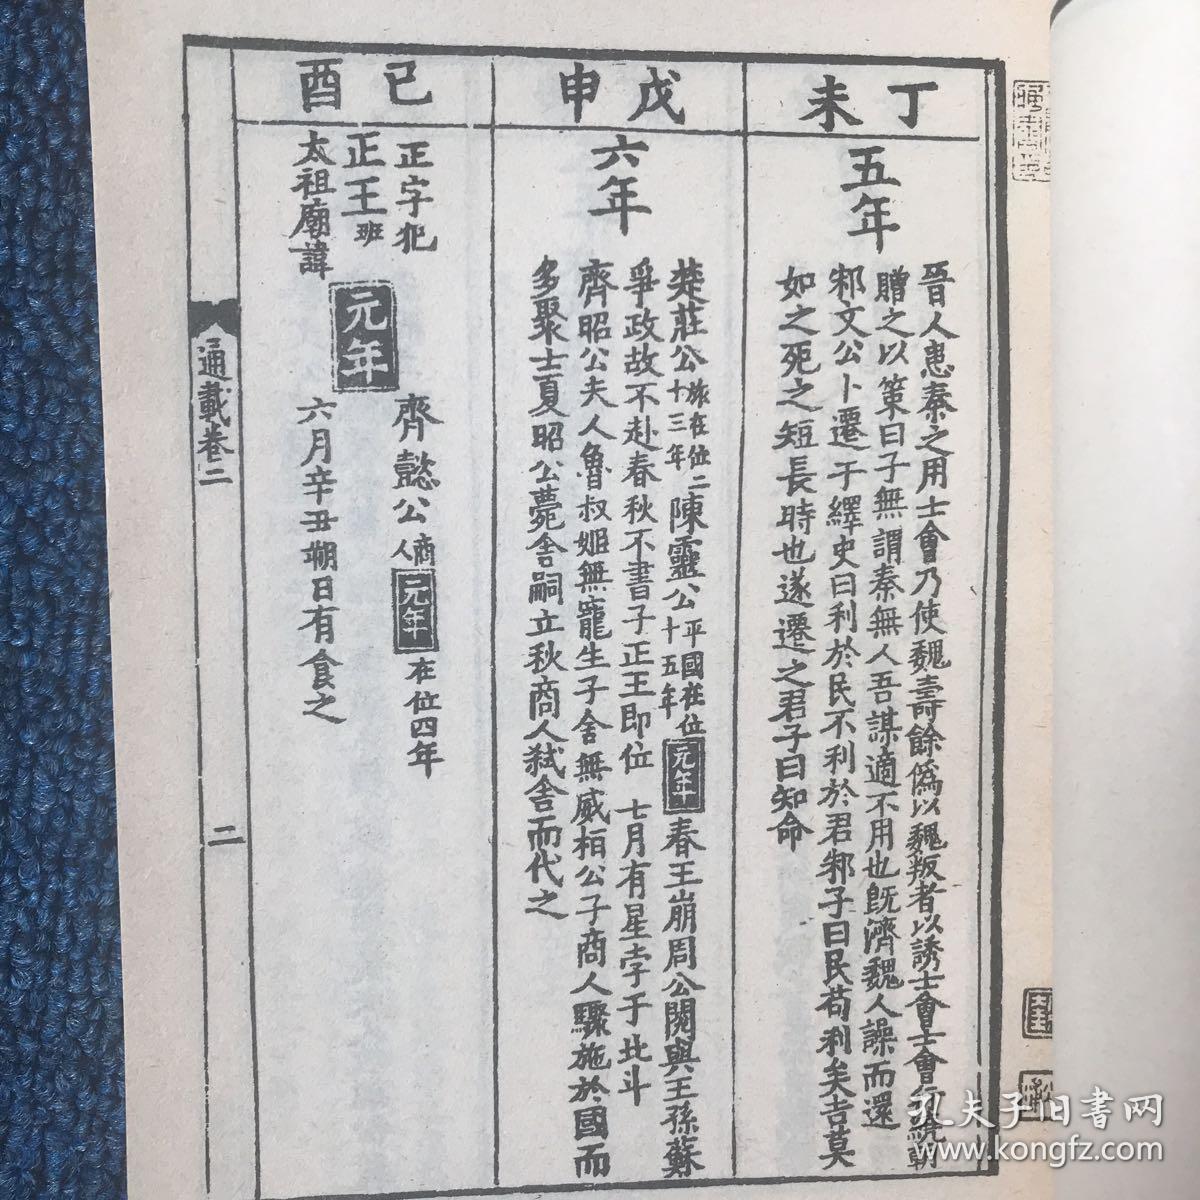 丁未
五年
晉人患秦之用士會乃使魏壽餘僞以魏叛者以誘士會士會行繞朝
贈之以策曰子無謂秦無人吾謀適不用也既濟魏人譟而還
邾文公卜遷于繹史曰利於民不利於君邾子曰民苟利矣吉莫
如之死之短長時也遂遷之君子曰知命
戊申
六年
楚莊公旅在位二十三年陳靈公平國在位十五年元年春王崩周公閱與王孫蘇
爭政故不赴春秋不書子正王即位 七月有星孛于北斗
齊昭公夫人魯叔姬無寵生子舍無威桓公子商人驟施於國而
多聚士夏昭公薨舍嗣立秋商人弒舍而代之
已酉
正字犯
正王班
太祖廟諱
元年
齊懿公商人元年在位四年
六月辛丑朔日有食之
通載卷二
二
孔夫子旧书网
www.kongfz.com